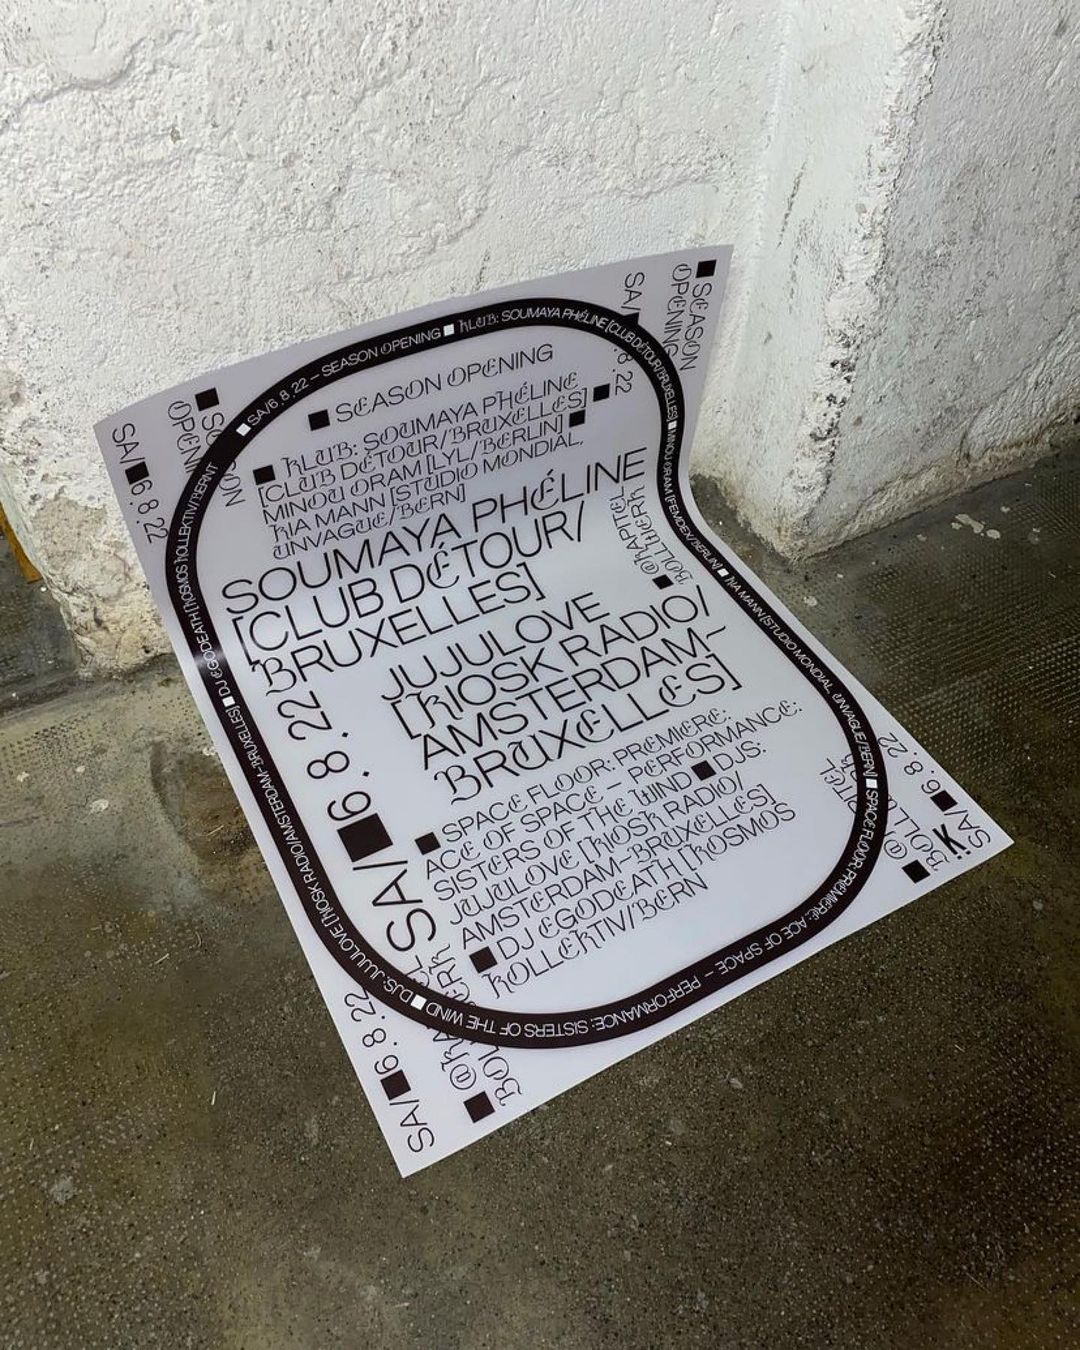 ■ SEASON OPENING
■ KLUB: SOUMAYA PHÉLINE
[CLUB DÉTOUR/BRUXELLES] ■
MINOU ORAM [LYL/BERLIN] ■
KIA MANN [STUDIO MONDIAL,
UNVAGUE/BERN]
SOUMAYA PHÉLINE
[CLUB DÉTOUR/
BRUXELLES]
JUJULOVE
[KIOSK RADIO/
AMSTERDAM–
BRUXELLES]
SA/■6.8.22
■ SPACE FLOOR: PREMIERE:
ACE OF SPACE – PERFORMANCE:
SISTERS OF THE WIND ■ DJS:
JUJULOVE [KIOSK RADIO/
AMSTERDAM–BRUXELLES]
■ DJ EGODEATH [KOSMOS
KOLLEKTIV/BERN
■ @KAPITEL
BOLLWERK
■ SA/6.8.22 – SEASON OPENING ■ KLUB: SOUMAYA PHÉLINE [CLUB DÉTOUR/BRUXELLES] ■ MINOU ORAM [FEMDEX/BERLIN] ■ KIA MANN [STUDIO MONDIAL, UNVAGUE/BERN] ■ SPACE FLOOR: PREMIERE: ACE OF SPACE – PERFORMANCE: SISTERS OF THE WIND ■ DJS: JUJULOVE [KIOSK RADIO/AMSTERDAM–BRUXELLES] ■ DJ EGODEATH [KOSMOS KOLLEKTIV/BERN
SA/■6.8.22
■ SEASON
OPENING
SA/■6.8.22
■ SEASON
OPENING
SA/■6.8.22
SA/■6.8.22
K̈